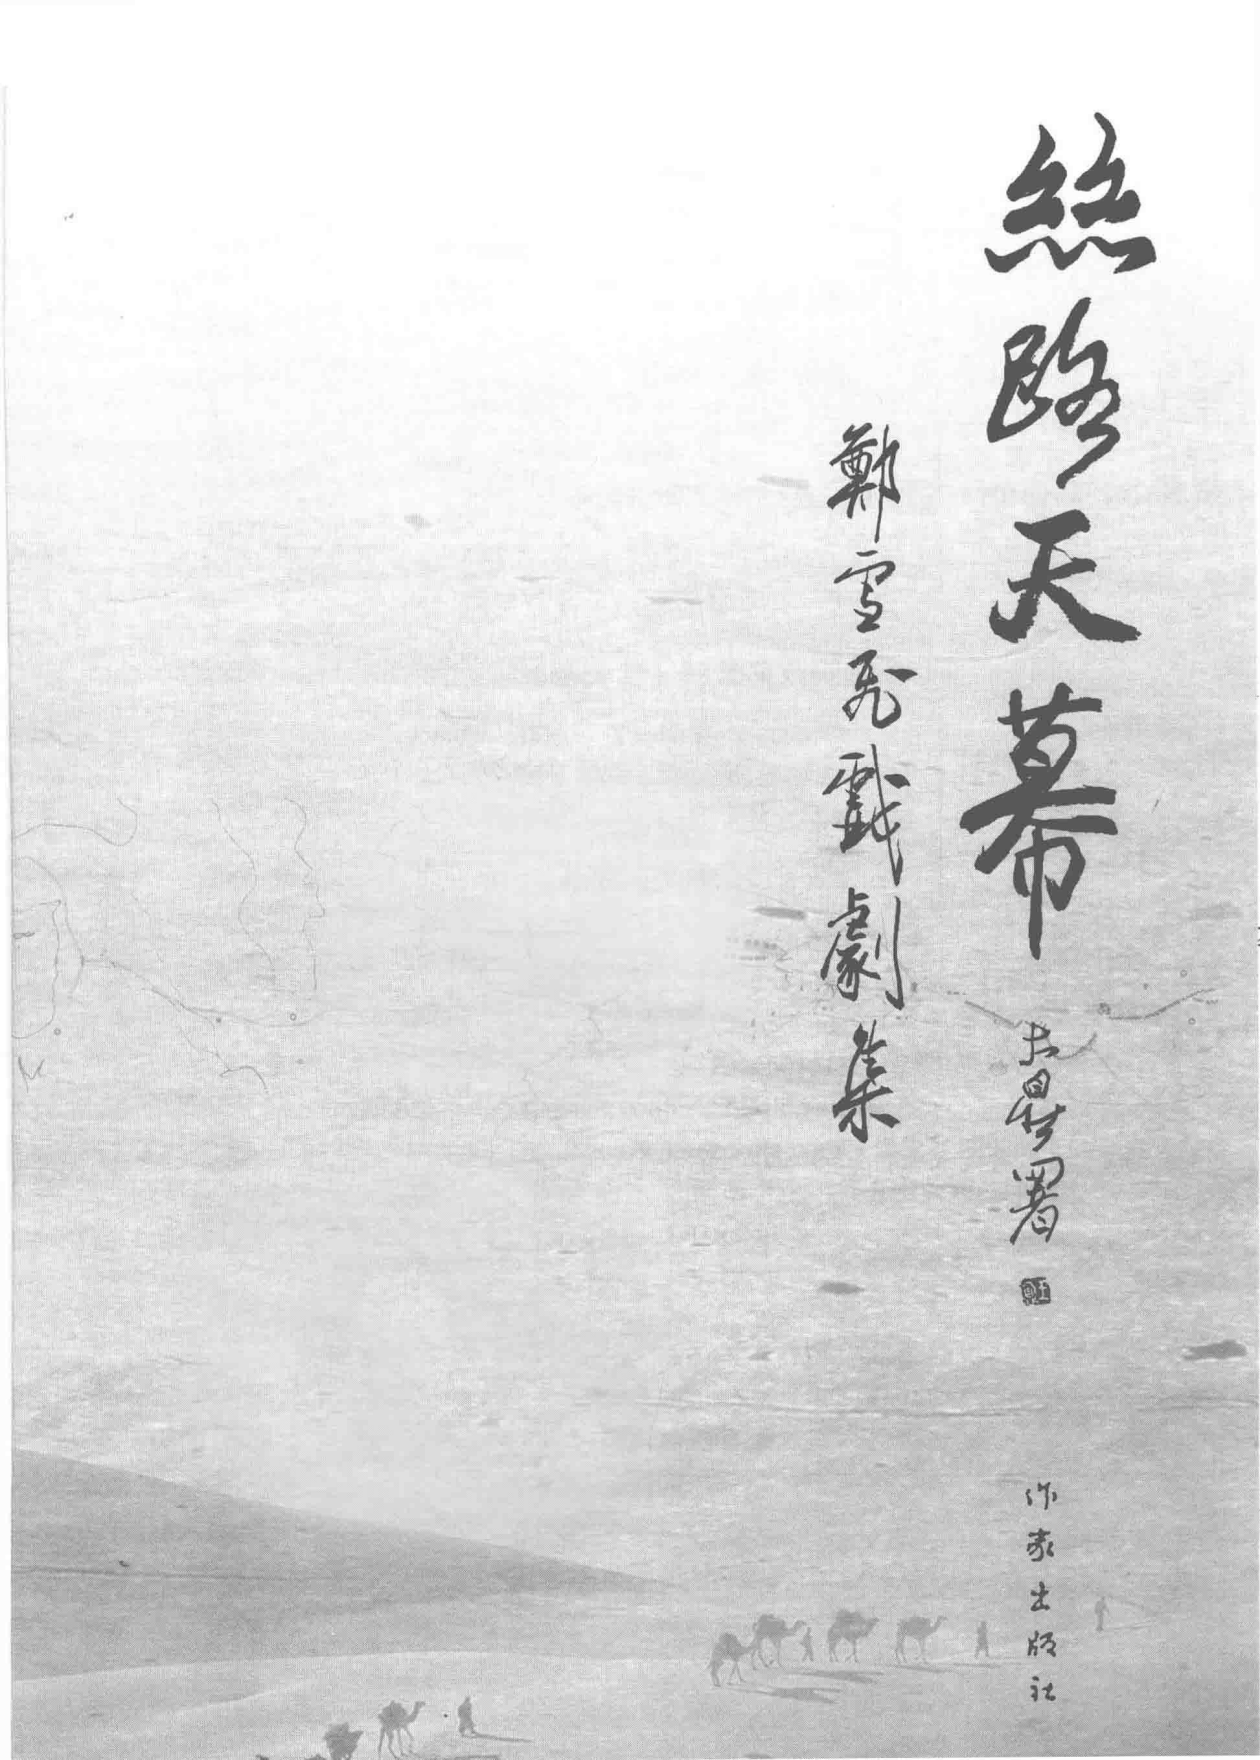 絲路天幕
署
鄭雪飛戲劇集
作家出版社